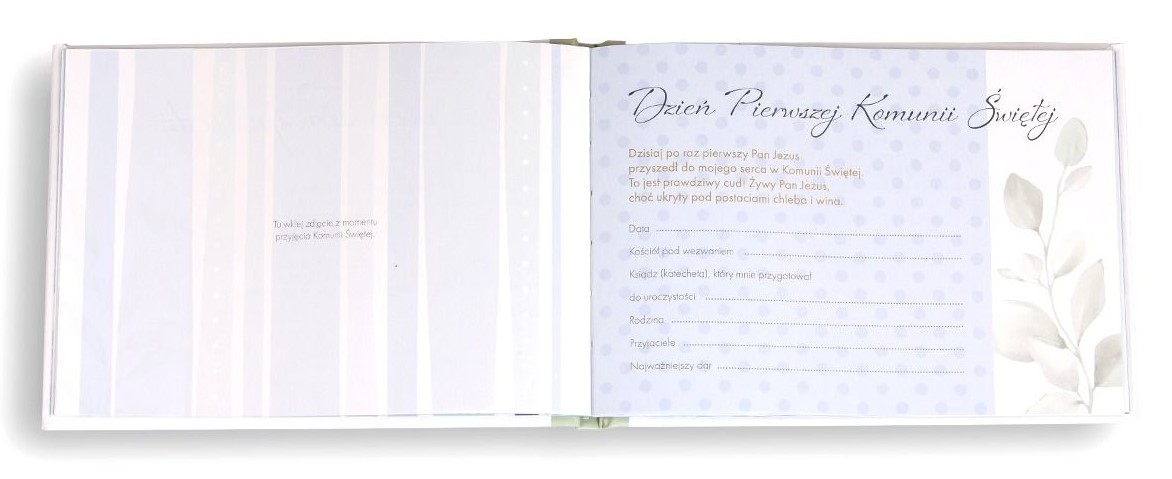 Tu wklej zdjęcie z momentu
przyjęcia Komunii Świętej.
Dzień Pierwszej Komunii Świętej
Dzisiaj po raz pierwszy Pan Jezus
przyszedł do mojego serca w Komunii Świętej.
To jest prawdziwy cud! Żywy Pan Jezus,
choć ukryty pod postaciami chleba i wina.
Data
Kościół pod wezwaniem
Ksiądz (katecheta), który mnie przygotował
do uroczystości
Rodzina
Przyjaciele
Najważniejszy dar